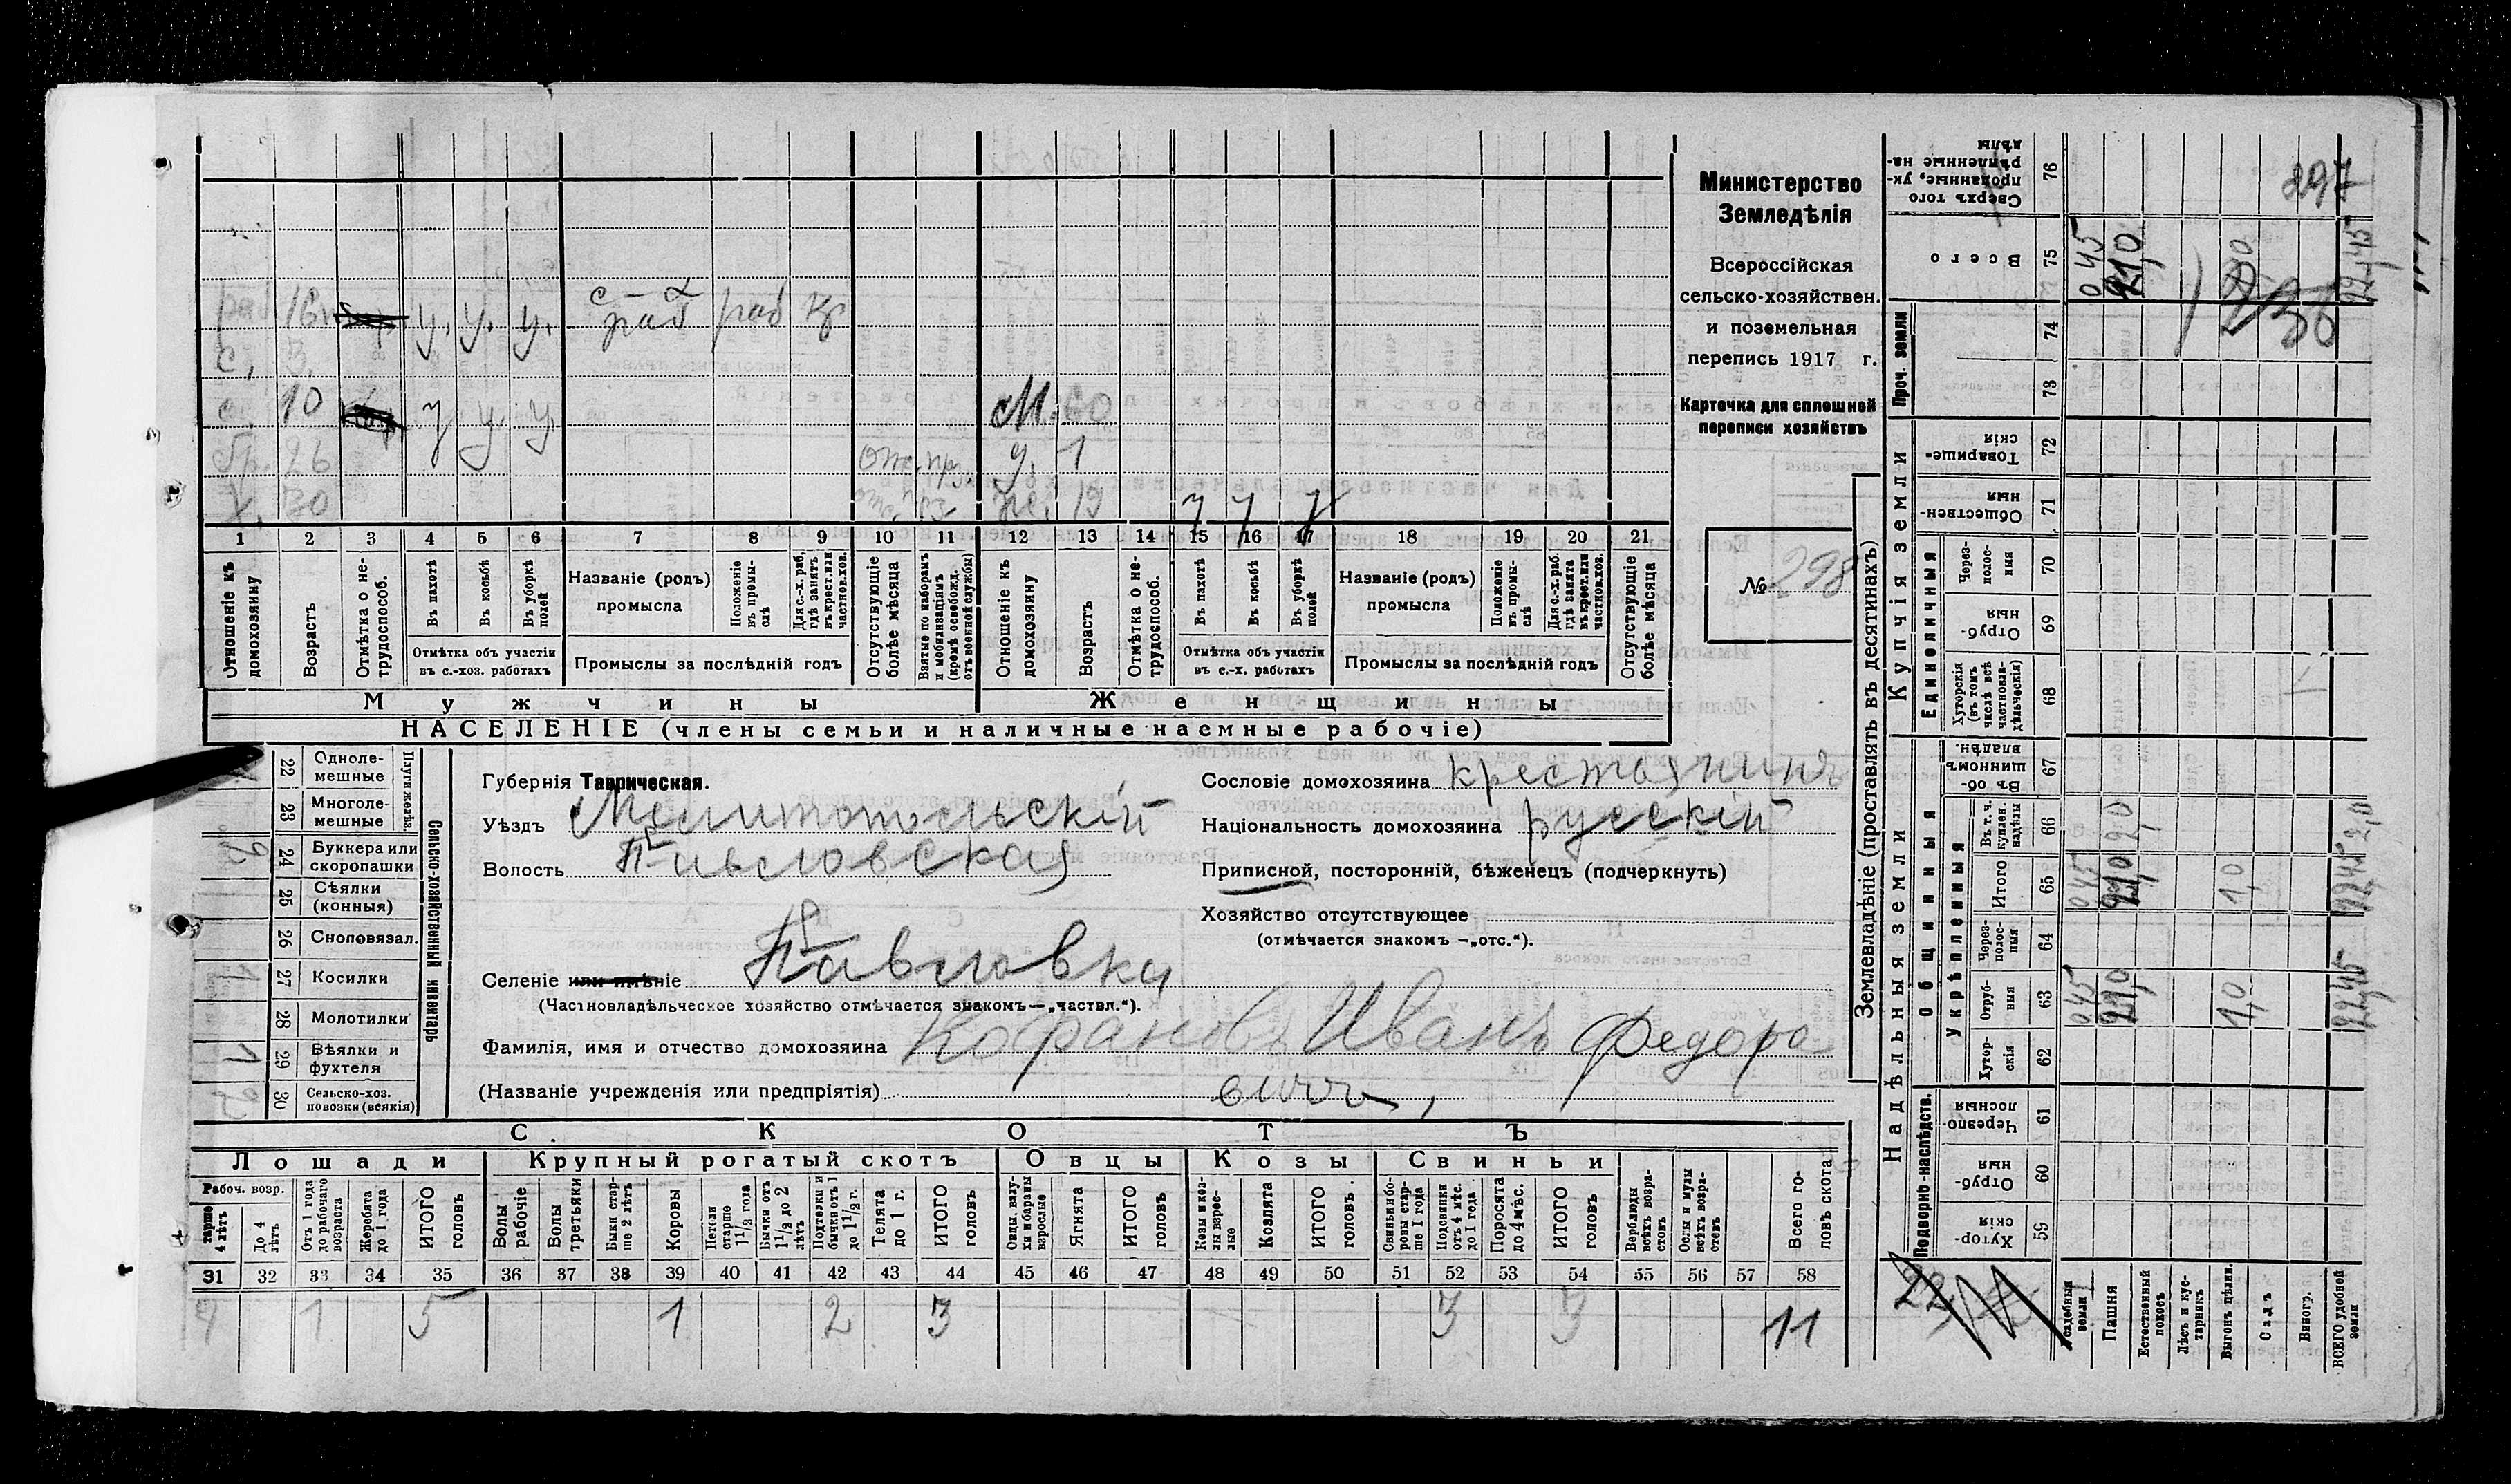 Министерство
Земледѣлія
Всероссійская
сельско-хозяйствен.
и поземельная
перепись 1917 г.
Карточка для сплошной
переписи хозяйствъ
№ 298
16 у. у. у. с-х раб раб кр
с, 3
с. 10 у у. у М. 60
бр. 26 отс. пр. д. 1
х. 30 отс. пр. ж. 19 у у у
1 2 3 4 5 6 7 8 9 10 11 12 13 14 15 16 17 18 19 20 21
Отношеніе къ домохозяину
Возрастъ
Отмѣтка о не-трудоспособ.
Въ пахотѣ
Въ косьбѣ
Въ уборкѣ полей
Отмѣтка объ участіи
въ с.-хоз. работахъ
Названіе (родъ)
промысла
Положеніе въ промы-слѣ
Для с.-х. раб, гдѣ занятъ въ крест. или частновл. хоз.
Промыслы за послѣдній годъ
Отсутствующіе болѣе мѣсяца
Взятые по наборамъ и мобилизаціямъ (кромѣ освобожд. отъ военной службы)
Отношеніе къ домохозяину
Возрастъ
Отмѣтка о не-трудоспособ.
Въ пахотѣ
Въ косьбѣ
Въ уборкѣ полей
Отмѣтка объ участіи
въ с.-х. работахъ
Названіе (родъ)
промысла
Положеніе въ промы-слѣ
Для с.-х. раб. гдѣ занята въ крест. или частновл. хоз.
Промыслы за послѣдній годъ
Отсутствующіе болѣе мѣсяца
Мужчины Женщины
НАСЕЛЕНІЕ (члены семьи и наличные наемные рабочіе)
Сельско-хозяйственный инвентарь
Плуги желѣз.
22 Однолемешные
23 Многолемешные
24 Буккера или скоропашки
25 Сѣялки (конныя)
26 Сноповязал.
27 Косилки 1
28 Молотилки
29 Вѣялки и фухтеля 1
30 Сельско-хоз. повозки (всякія)
Губернія Таврическая.
Уѣздъ Мелитопольскій
Волость Павловская
Селеніе или имѣніе Павловка
(Частновладѣльческое хозяйство отмѣчается знакомъ—„частвл.“).
Фамилія, имя и отчество домохозяина Кофановъ Иванъ Федоро-
(Названіе учрежденія или предпріятія) вичъ,
Сословіе домохозяина крестьянинъ
Національность домохозяина русскій
Приписной, посторонній, бѣженецъ (подчеркнуть)
Хозяйство отсутствующее
(отмѣчается знакомъ —„отс.“).
СКОТЪ
Лошади Крупный рогатый скотъ Овцы Козы Свиньи
Рабоч. возр.
старше 4 лѣтъ
До 4 лѣтъ
Отъ 1 года до рабочаго возраста
Жеребята до 1 года
ИТОГО головъ
Волы рабочіе
Волы третьяки
Быки стар-ше 2 лѣтъ
Коровы
Нетели старше 1½ года
Бычки отъ 1½ до 2 лѣтъ
Подтелки и бычки отъ 1 до 1½ г.
Телята до 1 г.
ИТОГО головъ
Овцы, валу-хи и бараны взрослые
Ягнята
ИТОГО головъ
Козы и коз-лы взрос-лые
Козлята
ИТОГО головъ
Свиньи и бо-ровы стар-ше 1 года
Подсвинки отъ 4 мѣс. до 1 года
Поросята до 4 мѣс.
ИТОГО головъ
Верблюды всѣхъ возра-стовъ
Ослы и мулы всѣхъ возра-стовъ
Всего го-ловъ скота
31 32 33 34 35 36 37 38 39 40 41 42 43 44 45 46 47 48 49 50 51 52 53 54 55 56 57 58
4 1 5 1 2 3 3 3 11
Землевладѣніе (проставлять въ десятинахъ)
Надѣльныя земли Купчія земли Проч. земли
Подворно-наслѣдств.
Общинныя
Укрѣпленныя
Единоличныя
59 Хутор-скія
60 Отруб-ныя
61 Черезпо-лосныя
62 Хутор-скія
63 Отруб-ныя 045 21,0 1,0 22,45
64 Через-полос-ныя
65 Итого 045 21,0 1,0 22,45
66 Въ т. ч. куплен. надѣлы 2,0 2,0
67 Въ об-щинномъ владѣн.
68 Хуторскія (въ томъ числѣ всѣ частновла-дѣльческія)
69 Отруб-ныя
70 Через-полос-ныя
71 Обществен-ныя
72 Товарище-скія
73
74
75 Всего 045 21,0 22,45
76 Сверхъ того проданные, ук-рѣпленные на-дѣлы
297
Усадебныя земли
Пашня
Естественный покосъ
Лѣсъ и кус-тарникъ
Выгонъ цѣлин.
Садъ
Виногр.
ВСЕГО удобной земли